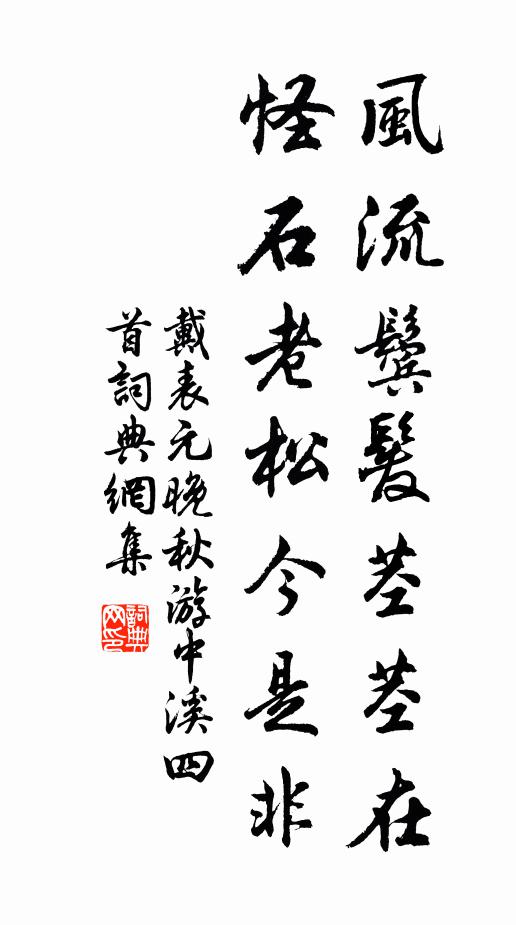 風流鬢髮莖莖在
怪石老松今是非
戴表元晚秋游中溪四
首詞典網集
詞典网印